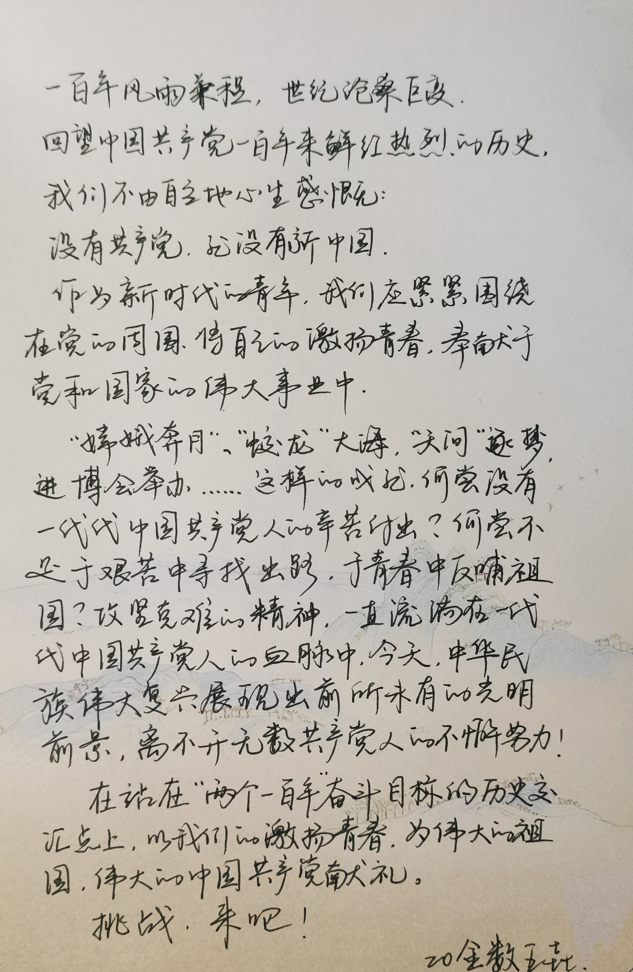 一百年风雨兼程，世纪沧桑巨变.
回望中国共产党一百年来鲜红热烈的历史，
我们不由自主地心生感慨：
没有共产党.就没有新中国.
作为新时代的青年，我们应紧紧围绕
在党的周围.将自己的激扬青春，奉献于
党和国家的伟大事业中.
“嫦娥奔月”、“蛟龙”入海，“天问”逐梦，
进博会举办……这样的成就.何尝没有
一代代中国共产党人的辛苦付出？何尝不
是于艰苦中寻找出路，于青春中反哺祖
国？攻坚克难的精神，一直流淌在一代
代中国共产党人的血脉中.今天，中华民
族伟大复兴展现出前所未有的光明
前景，离不开无数共产党人的不懈努力！
在站在“两个一百年”奋斗目标的历史交
汇点上，以我们的激扬青春.为伟大的祖
国，伟大的中国共产党献礼。
挑战.来吧！
20金数王垚.